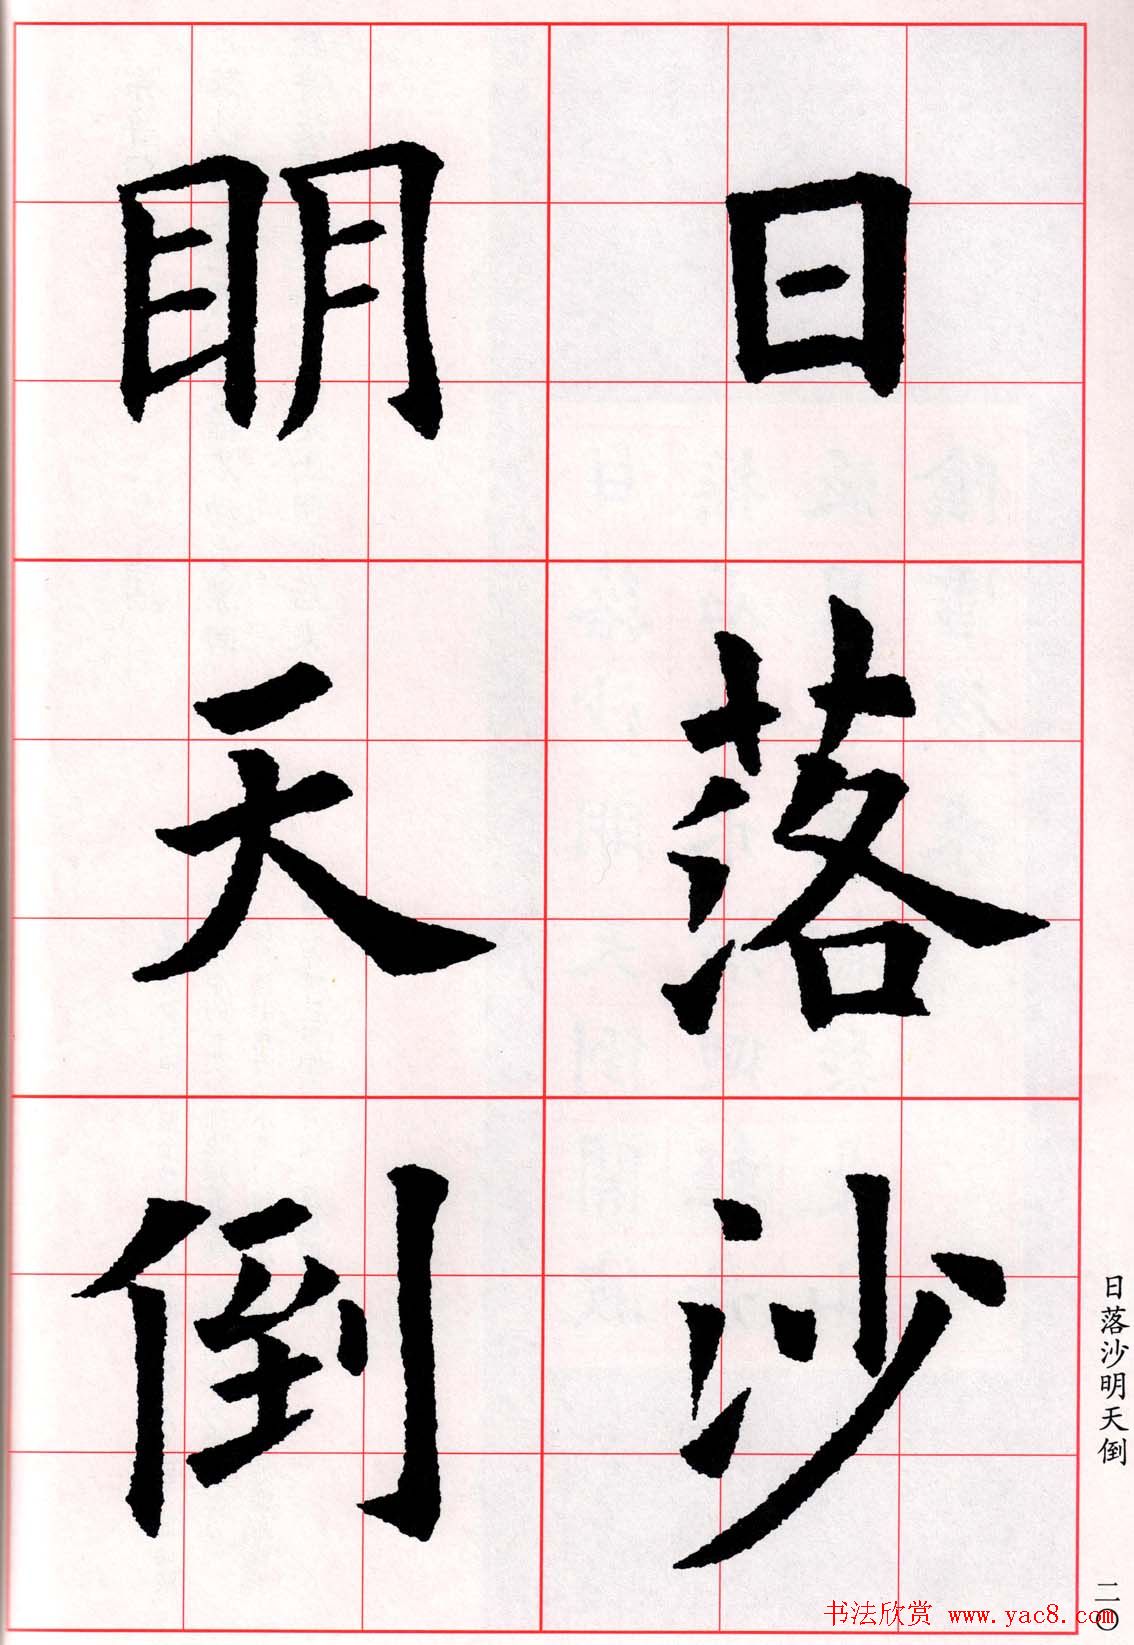 日落沙
明天倒
日落沙明天倒
二〇
书法欣赏 www.yac8.com